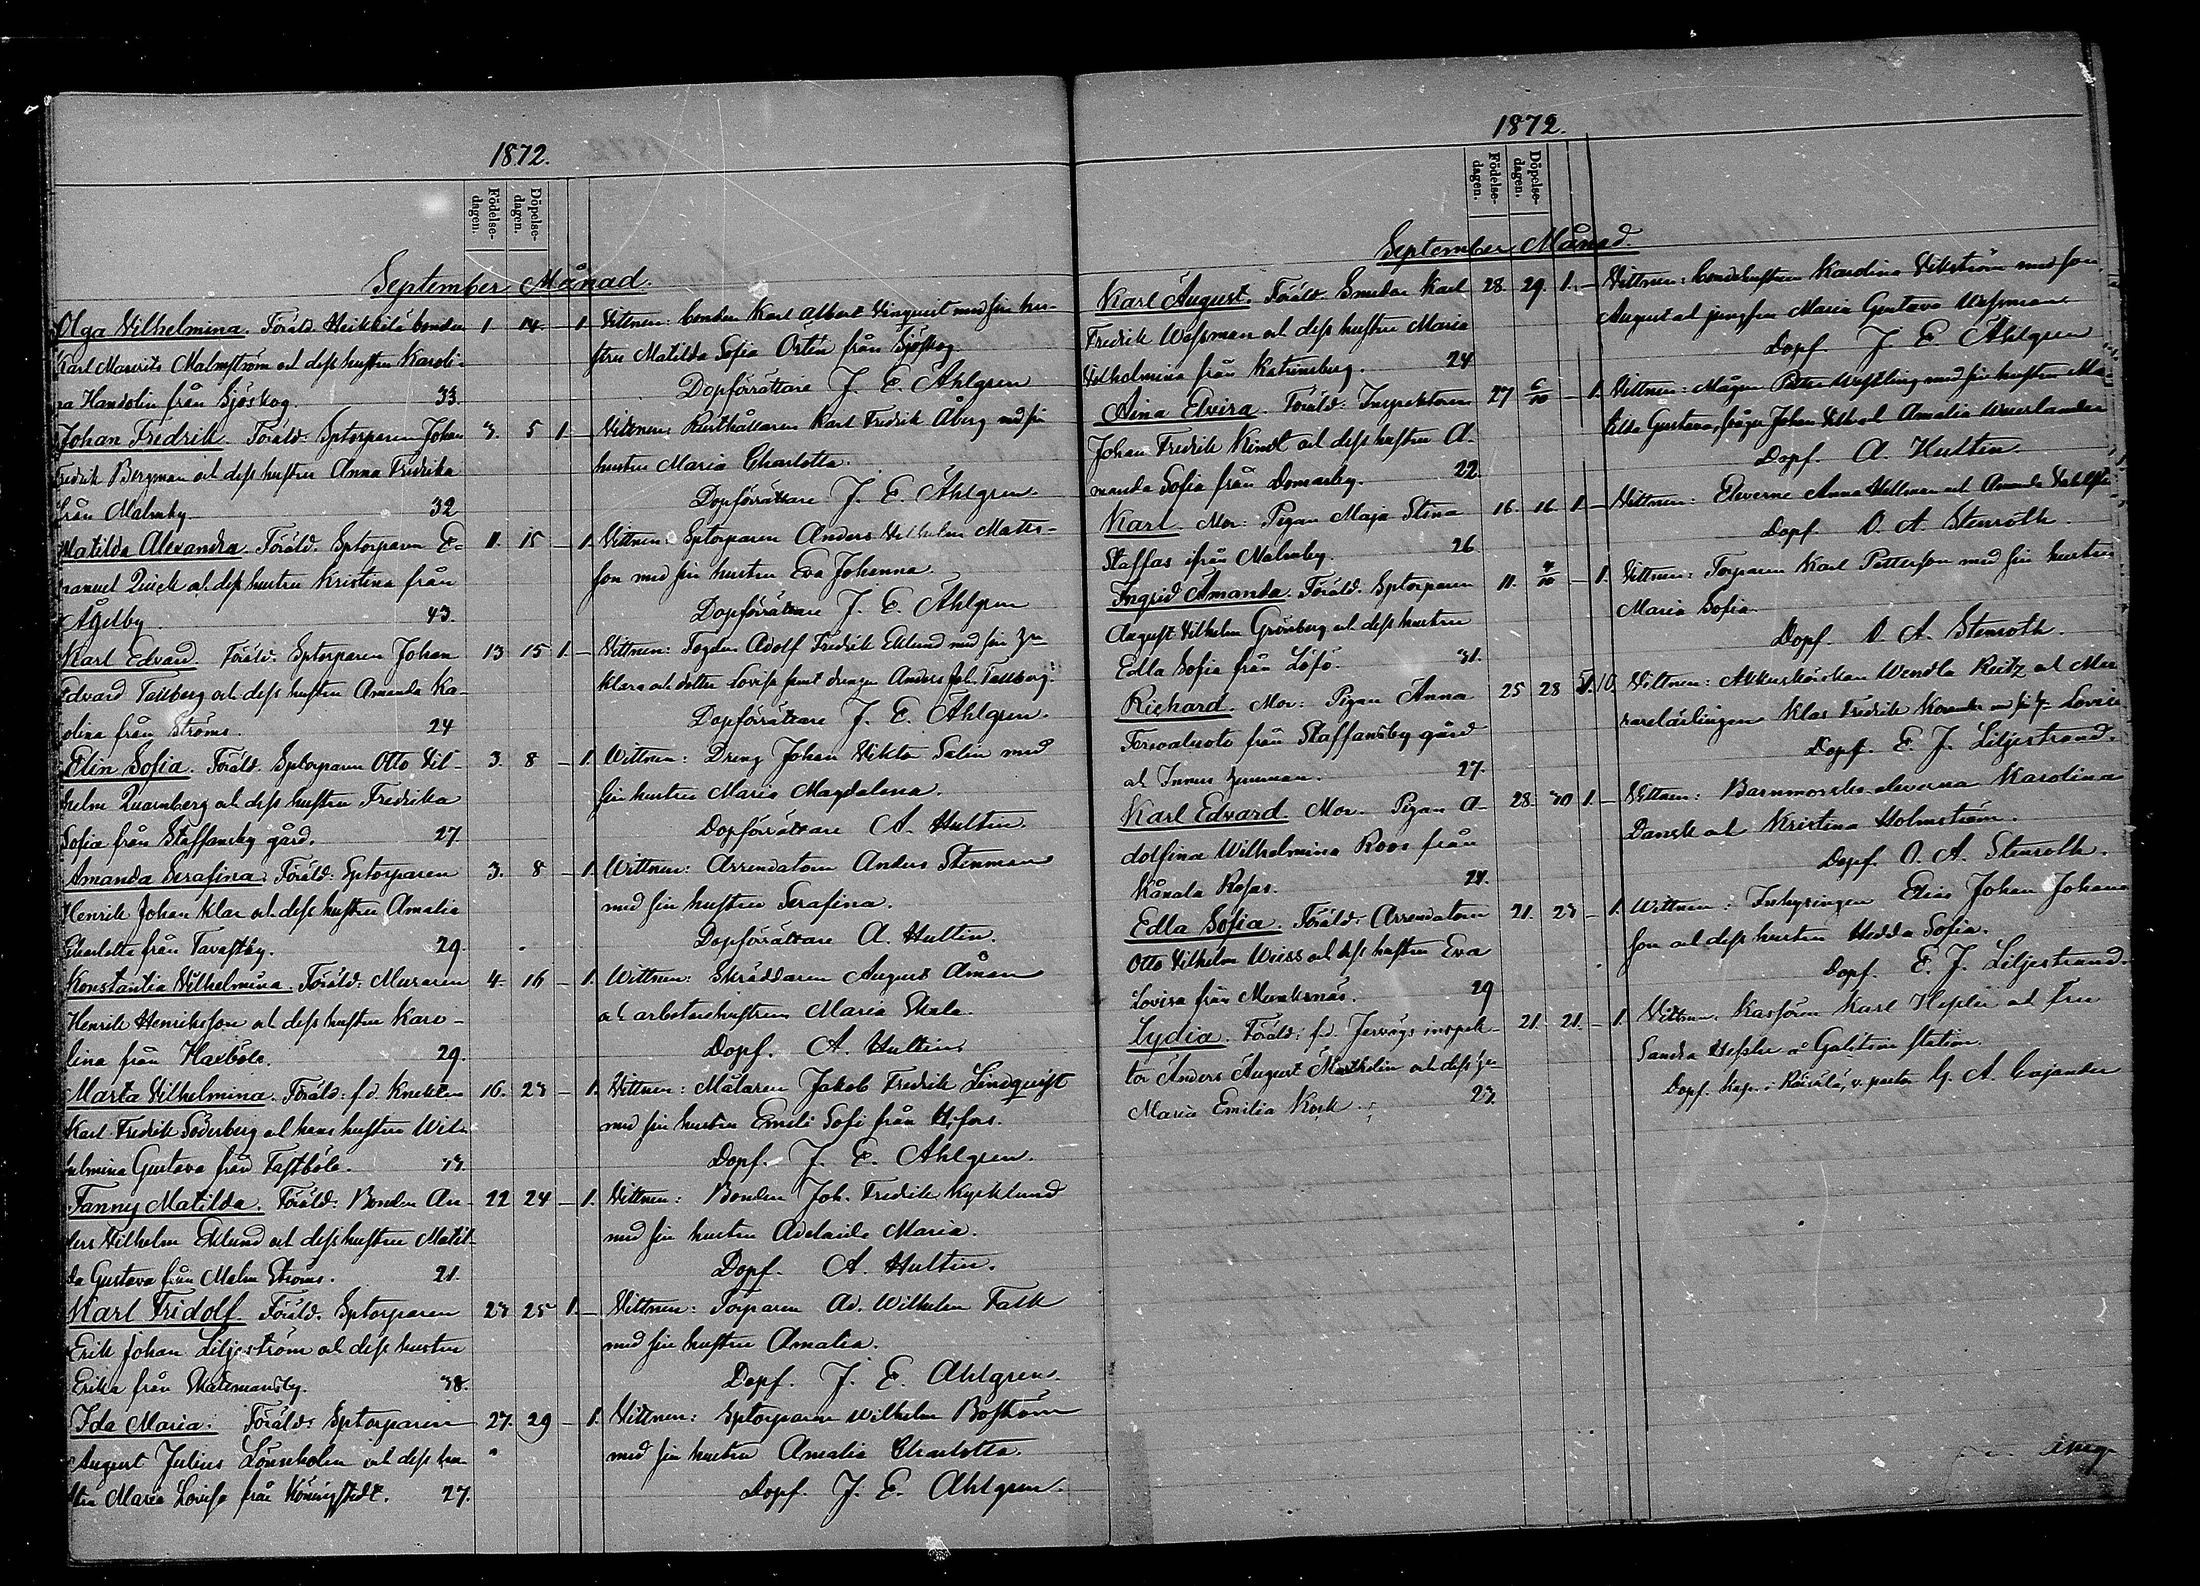 1872.
Födelse-
dagen.
Döpelse-
dagen.
September Månad.
Olga Vilhelmina. Föräld. Heikkilä bonden 1 14 — 1 Vittnen: bonden Karl Albert Vinquist med sin hu-
Karl Mauritz Malmström och dess hustru Karoli- stru Matilda Sofia Ostén från Sjöskog
na Handolin från Sjöskog. 33. Dopförrättare J. E. Ahlgren
Johan Fredrik. Föräld. Sptorparen Johan 3. 5 1 — Vittnen: Karl Fredrik Åberg med sin
Fredrik Bergman och dess hustru Anna Fredrika hustru Maria Charlotta.
från Malmby 32 Dopförrättare J. E. Ahlgren.
Matilda Alexandra. Föräld. Sptorparen E- 11. 15 — 1. Vittnen: Sptorparen Anders Vilhelm Matts-
manuel Quick och dess hustru Kristina från son med sin hustru Eva Johanna
Ågelby 43. Dopförrättare J. E. Ahlgren
Karl Edvard. Föräld. Sptorparen Johan 13 15 1. — Vittnen: Fogden Adolf Fredrik Eklund med sin
Edvard Tallberg och dess hustru Amanda Ka- och dotter Lovisa samt drengen Anders Joh. Tallberg.
rolina från Ströms. 24 Dopförrättare J. E. Ahlgren.
Elin Sofia. Föräld. Sptorparen Otto Vil- 3. 8 — 1. Wittnen: Dreng Johan Viktor Salin med
helm Quarnberg och dess hustru Fredrika sin hustru Maria Magdalena.
Sofia från Staffansby gård. 27 Dopförrättare A. Hultin.
Amanda Serafina. Föräld: Sptorparen 3. 8 — 1. Wittnen: Arrendatorn Anders Stenman
Henrik Johan Klar och dess hustru Amalia med sin hustru Serafina.
Charlotta från Tavastby. 29. Dopförrättare A. Hultin.
Konstantia Vilhelmina. Föräld: Muraren 4. 16 — 1. Wittnen: Skräddaren August Åman
Henrik Henriksson och dess hustru Karo- och arbetarehustrun Maria Skala.
lina från Haxböle. 29. Dopf. A. Hultin.
Marta Vilhelmina. Föräld: f.d. Knekten 10. 23 — 1. Vittnen: Målaren Jakob Fredrik Lindquist
Karl Fredrik Söderberg och hans hustru Wil- med sin hustru Emeli Sofi från H:fors.
helmina Gustava från Fastböle. 33. Dopf. J. E. Ahlgren.
Fanny Matilda. Föräld: Bonden An- 22 24 — 1. Vittnen: Bonden Joh. Fredrik Kyrklund
ders Vilhelm Eklund och dess hustru Matil- med sin hustru Adelaide Maria.
da Gustava från Malm Ströms. 21. Dopf. A. Hultin.
Karl Fridolf. Föräld. Sptorparen 23 25 1. — Vittnen: Torparen Ad. Wilhelm Falk
Erik Johan Liljeström och dess hustru med sin hustru Amalia.
Erika från Skattmansby. 38. Dopf. J. E. Ahlgren.
Ida Maria. Föräld: Sptorparen 27. 29 — 1. Vittnen: Sptorparen Wilhelm Boström
August Julius Lönnholm och dess hu- med sin hustru Amalia Charlotta.
stru Maria Lovisa från Köningstedt. 27. Dopf. J. E. Ahlgren.
1872.
Födelse-
dagen.
Döpelse-
dagen.
September Månad.
Karl August. Föräld. Smeden Karl 28. 29. 1. — Vittnen: bondehustrun Karolina Vikström med son
Fredrik Wessman och dess hustru Maria August och jungfrun Maria Gustava Wessman
Vilhelmina från Katrineberg. 24 Dopf. J. E. Ahlgren
Aina Elvira. Föräld: Inspektoren 27 6/10 — 1. Vittnen: Mågen Petter Westling med sin hustru Ma-
Johan Fredrik Kindt och dess hustru A- tilda Gustava, Johan Vilh och Amalia Weurlander
manda Sofia från Domarby. 22 Dopf. A. Hultin.
Karl. Mor: Pigan Maja Stina 16. 16 1. — Vittnen: Eleverne Anna Hellman och Amanda
Staffas ifrån Malmby. 26 Dopf. O. A. Stenroth.
Ingrid Amanda. Föräld. Sptorparen 11. 4/10 — 1. Vittnen: Torparen Karl Petterson med sin hustru
August Vilhelm Grönberg och dess hustru Maria Sofia.
Edla Sofia från Löfö. 31. Dopf. O. A. Stenroth.
Richard. Mor: Pigan Anna 25 28 Vittnen: Akkuskörskan Wendla Reitz och Mu-
från Staffansby gård rarelärlingen Klas Fredrik
och 27. Dopf. E. J. Liljestrand.
Karl Edvard. Mor. Pigan A- 28. 30 1. — Vittnen: Barnmorske-eleverna Karolina
dolfina Wilhelmina Roos från Dansk och Kristina Holmström.
Kånala Rosas. 24. Dopf. O. A. Stenroth.
Edla Sofia. Föräld: Arrendatorn 21. 23 — 1. Wittnen: Inhysingen Elias Johan Johans-
Otto Vilhelm Weiss och dess hustru Eva son och dess hustru Hedda Sofia.
Lovisa från Munksnäs. 29 Dopf. E. J. Liljestrand.
Lydia. Föräld: f.d. Jernvägs inspek- 21. 21. — 1. Vittnen: Kassören Karl Hesler och Fru
tor Anders August Marthelin och dess Sandra Hesler å Galitzin station.
Maria Emilia Kock. 23. Dopf. Kap. i Räisälä, v. pastor G. A. Cajander